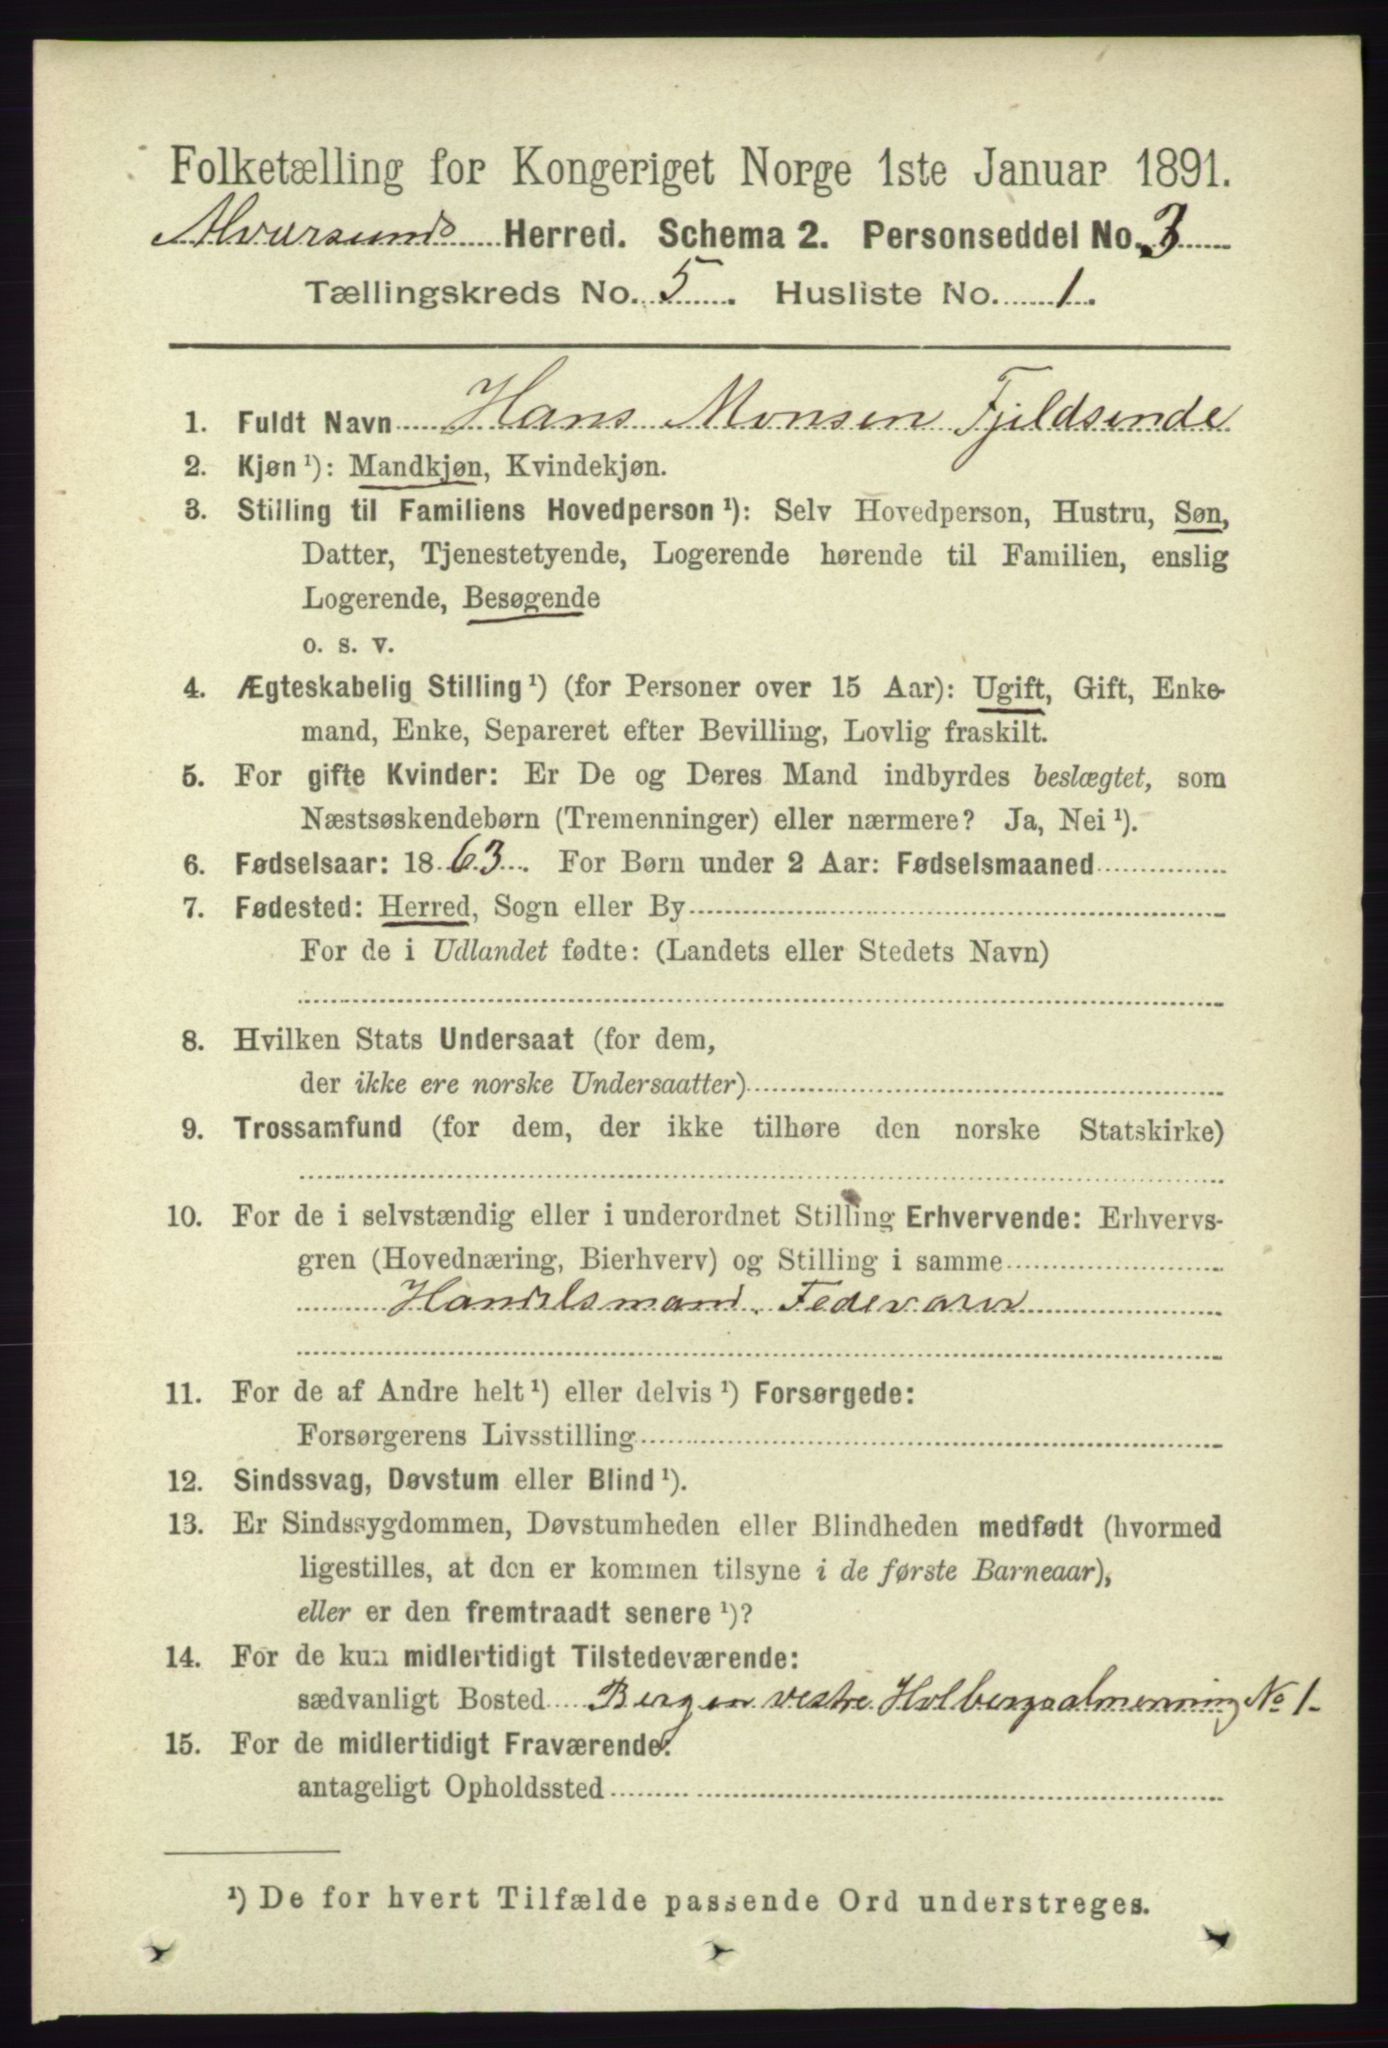 Folketælling for Kongeriget Norge 1ste Januar 1891.
Alversunds Herred. Schema 2. Personseddel No. 3
Tællingskreds No. 5. Husliste No. 1.
1. Fuldt Navn Hans Monsen Fjeldsende
2. Kjøn ¹): Mandkjøn, Kvindekjøn.
3. Stilling til Familiens Hovedperson ¹): Selv Hovedperson, Hustru, Søn,
Datter, Tjenestetyende, Logerende hørende til Familien, enslig
Logerende, Besøgende
o. s. v.
4. Ægteskabelig Stilling ¹) (for Personer over 15 Aar): Ugift, Gift, Enke-
mand, Enke, Separeret efter Bevilling, Lovlig fraskilt.
5. For gifte Kvinder: Er De og Deres Mand indbyrdes beslægtet, som
Næstsøskendebørn (Tremenninger) eller nærmere? Ja, Nei ¹).
6. Fødselsaar: 1863. For Børn under 2 Aar: Fødselsmaaned
7. Fødested: Herred, Sogn eller By
For de i Udlandet fødte: (Landets eller Stedets Navn)
8. Hvilken Stats Undersaat (for dem,
der ikke ere norske Undersaatter)
9. Trossamfund (for dem, der ikke tilhøre den norske Statskirke)
10. For de i selvstændig eller i underordnet Stilling Erhvervende: Erhvervs-
gren (Hovednæring, Bierhverv) og Stilling i samme
Handelsmand. Fedevarer
11. For de af Andre helt ¹) eller delvis ¹) Forsørgede:
Forsørgerens Livsstilling
12. Sindssvag, Døvstum eller Blind ¹).
13. Er Sindssygdommen, Døvstumheden eller Blindheden medfødt (hvormed
ligestilles, at den er kommen tilsyne i de første Barneaar),
eller er den fremtraadt senere ¹)?
14. For de kun midlertidigt Tilstedeværende:
sædvanligt Bosted Bergen vestre Holbergsalmenning No 1.
15. For de midlertidigt Fraværende:
antageligt Opholdssted
¹) De for hvert Tilfælde passende Ord understreges.